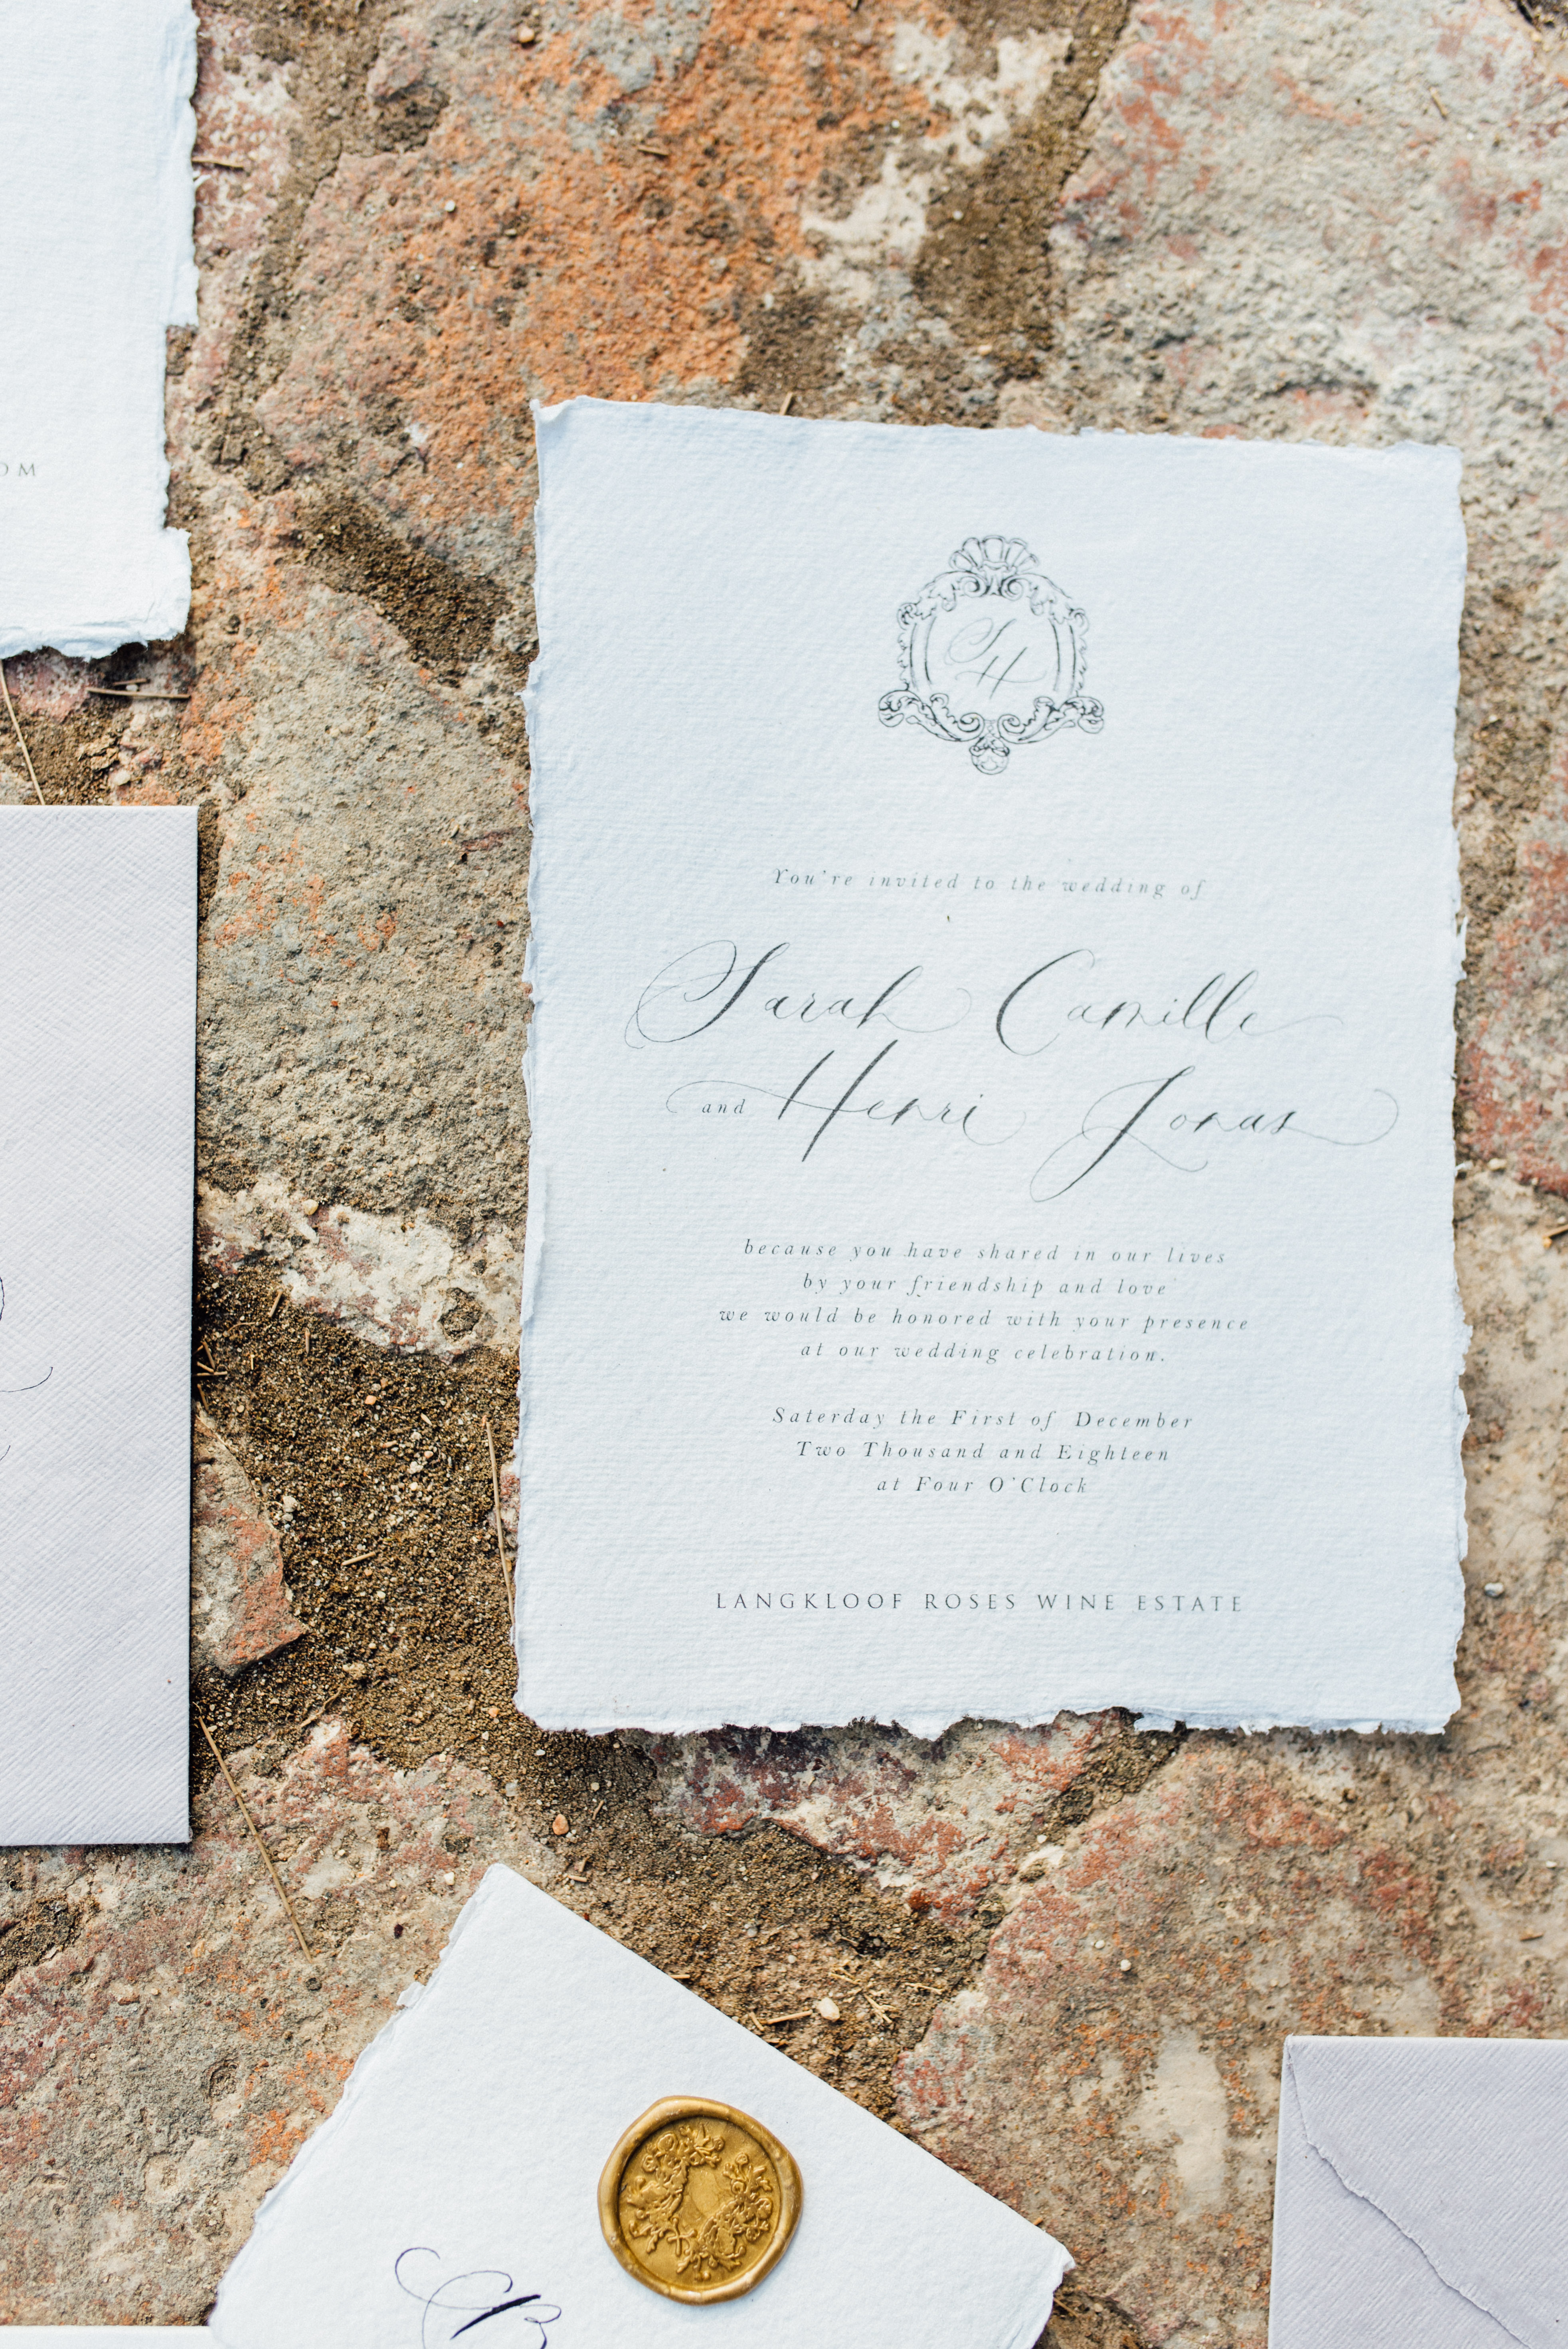 OM
S
H
You're invited to the wedding of
Sarah Camille
and Henri Jonas
because you have shared in our lives
by your friendship and love
we would be honored with your presence
at our wedding celebration.
Saterday the First of December
Two Thousand and Eighteen
at Four O'Clock
LANGKLOOF ROSES WINE ESTATE